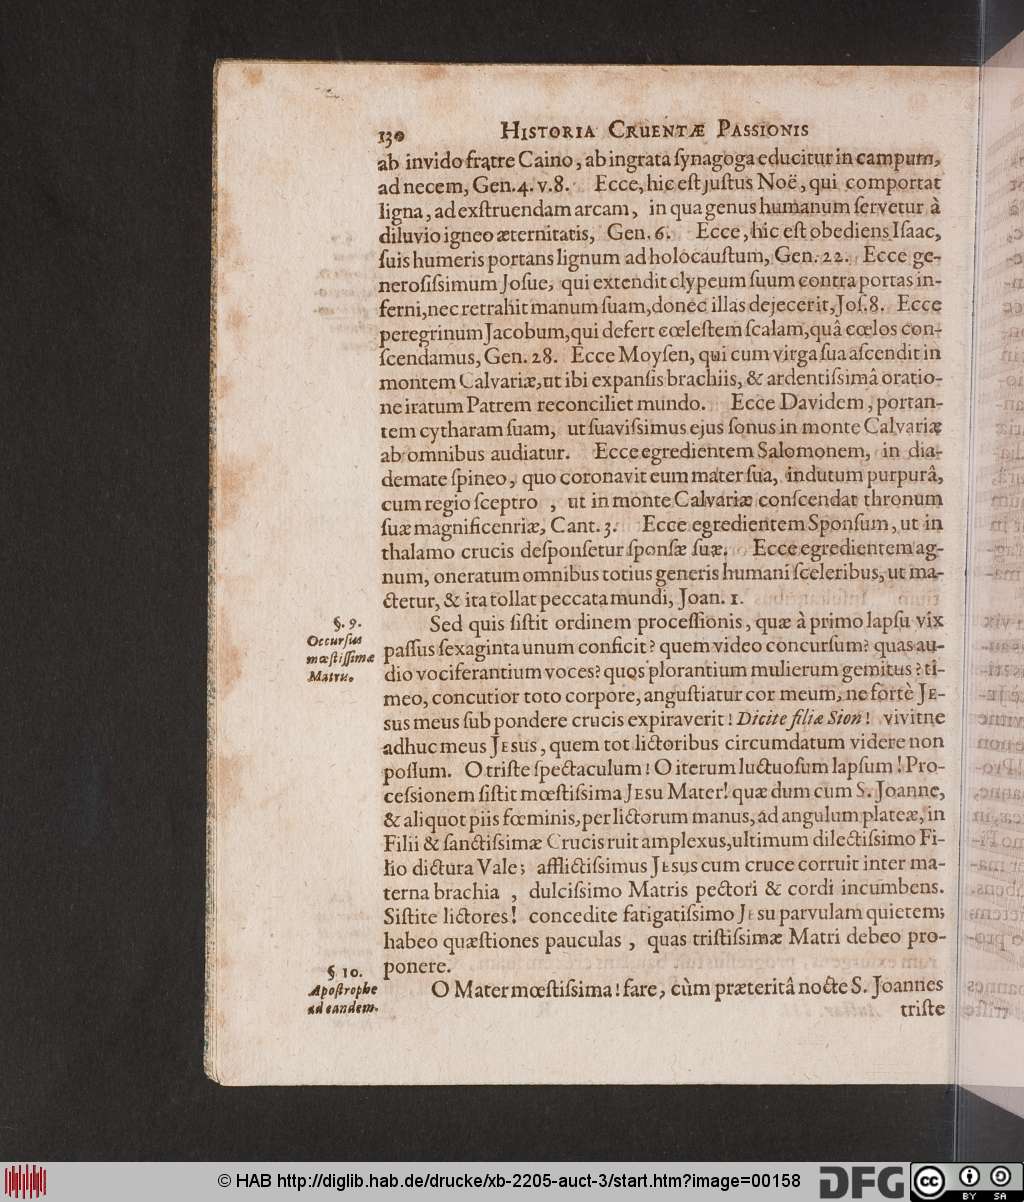 130 HISTORIA CRUENTÆ PASSIONIS
ab invido fratre Caino, ab ingrata ſynagoga educitur in campum,
ad necem, Gen. 4. v. 8. Ecce, hic eſt juſtus Noë, qui comportat
ligna, ad exſtruendam arcam, in qua genus humanum ſervetur à
diluvio igneo æternitatis, Gen. 6. Ecce, hic eſt obediens Iſaac,
ſuis humeris portans lignum ad holocauſtum, Gen. 22. Ecce ge-
neroſiſsimum Joſue, qui extendit clypeum ſuum contra portas in-
ferni, nec retrahit manum ſuam, donec illas dejecerit, Joſ. 8. Ecce
peregrinum Jacobum, qui defert cœleſtem ſcalam, quâ cœlos con-
ſcendamus, Gen. 28. Ecce Moyſen, qui cum virga ſua aſcendit in
montem Calvariæ, ut ibi expanſis brachiis, & ardentiſsimâ oratio-
ne iratum Patrem reconciliet mundo. Ecce Davidem, portan-
tem cytharam ſuam, ut ſuaviſsimus ejus ſonus in monte Calvariæ
ab omnibus audiatur. Ecce egredientem Salomonem, in dia-
demate ſpineo, quo coronavit eum mater ſua, indutum purpurâ,
cum regio ſceptro , ut in monte Calvariæ conſcendat thronum
ſuæ magnificenriæ, Cant. 3. Ecce egredientem Sponſum, ut in
thalamo crucis deſponſetur ſponſæ ſuæ. Ecce egredientem ag-
num, oneratum omnibus totius generis humani ſceleribus, ut ma-
ctetur, & ita tollat peccata mundi, Joan. 1.
§. 9.
Occurſus
mœſtiſſimæ
Matris.
Sed quis ſiſtit ordinem proceſſionis, quæ à primo lapſu vix
paſſus ſexaginta unum conficit? quem video concurſum? quas au-
dio vociferantium voces? quos plorantium mulierum gemitus? ti-
meo, concutior toto corpore, anguſtiatur cor meum, ne fortè JE-
sus meus ſub pondere crucis expiraverit! Dicite filiæ Sion! vivitne
adhuc meus JESUS, quem tot lictoribus circumdatum videre non
poſſum. O triſte ſpectaculum! O iterum luctuoſum lapſum! Pro-
ceſsionem ſiſtit mœſtiſsima JESU Mater! quæ dum cum S. Joanne,
& aliquot piis fœminis, per lictorum manus, ad angulum plateæ, in
Filii & ſanctiſsimæ Crucis ruit amplexus, ultimum dilectiſsimo Fi-
lio dictura Vale; afflictiſsimus JESUS cum cruce corruit inter ma-
terna brachia , dulciſsimo Matris pectori & cordi incumbens.
Siſtite lictores! concedite fatigatiſsimo JESU parvulam quietem;
habeo quæſtiones pauculas , quas triſtiſsimæ Matri debeo pro-
ponere.
§ 10.
Apoſtrophe
ad eandem.
O Mater mœſtiſsima! fare, cùm præteritâ nocte S. Joannes
triſte
© HAB http://diglib.hab.de/drucke/xb-2205-auct-3/start.htm?image=00158
DFG
cc BY SA